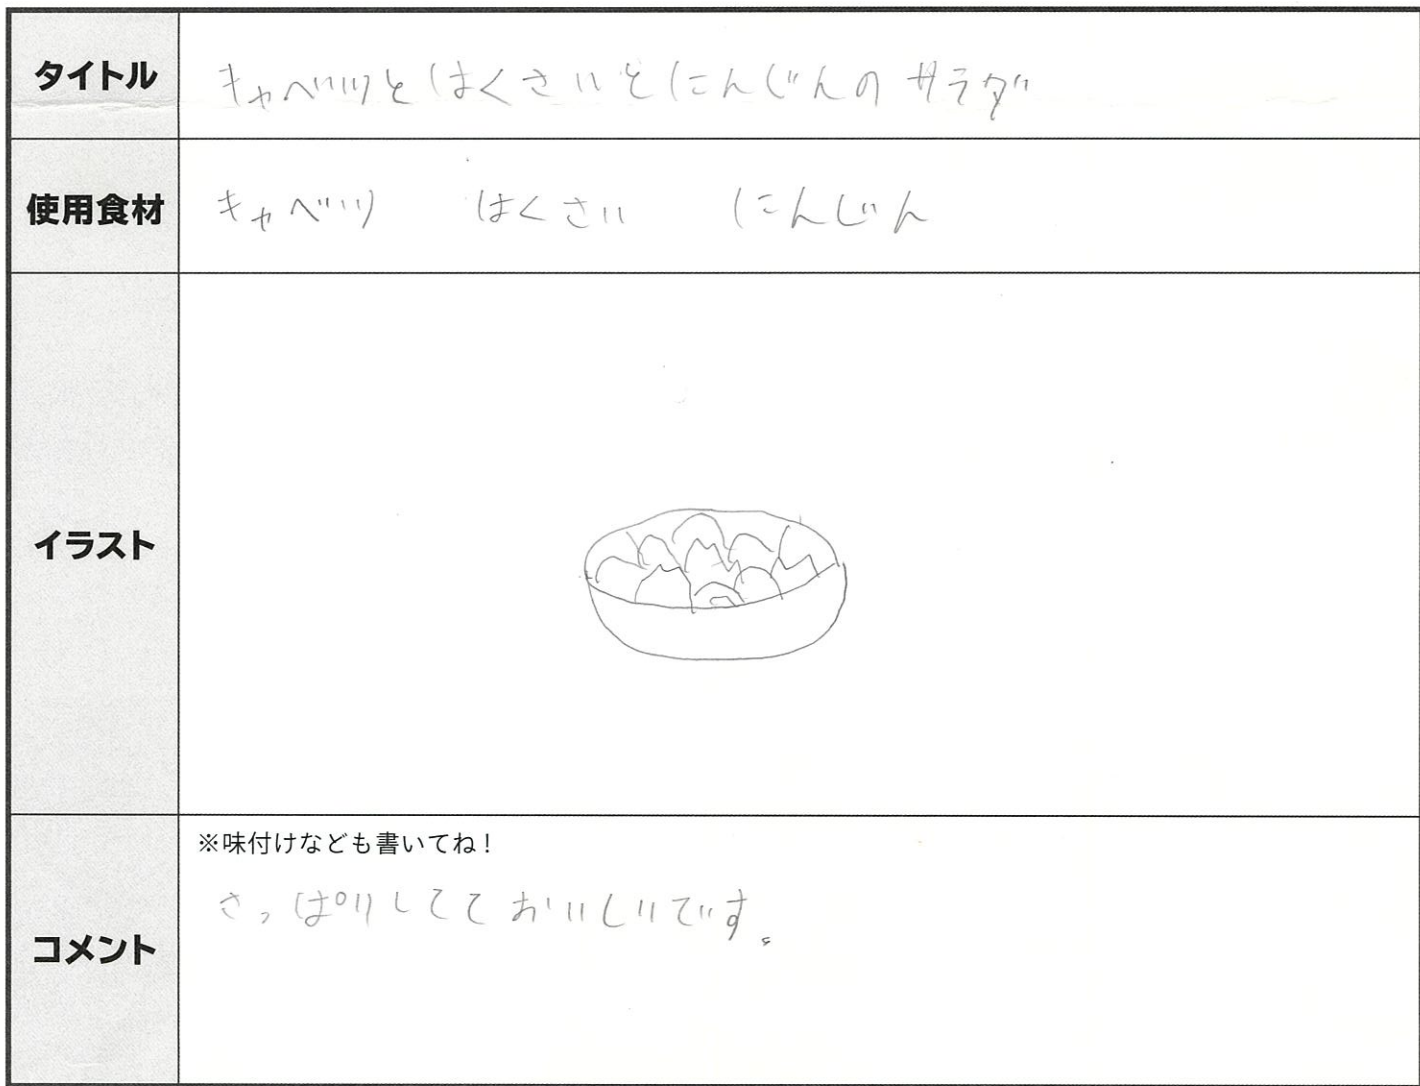 タイトル
キャベツとはくさいとにんじんのサラダ
使用食材
キャベツ はくさい にんじん
イラスト
コメント
※味付けなども書いてね!
さっぱりしてて おいしいです。